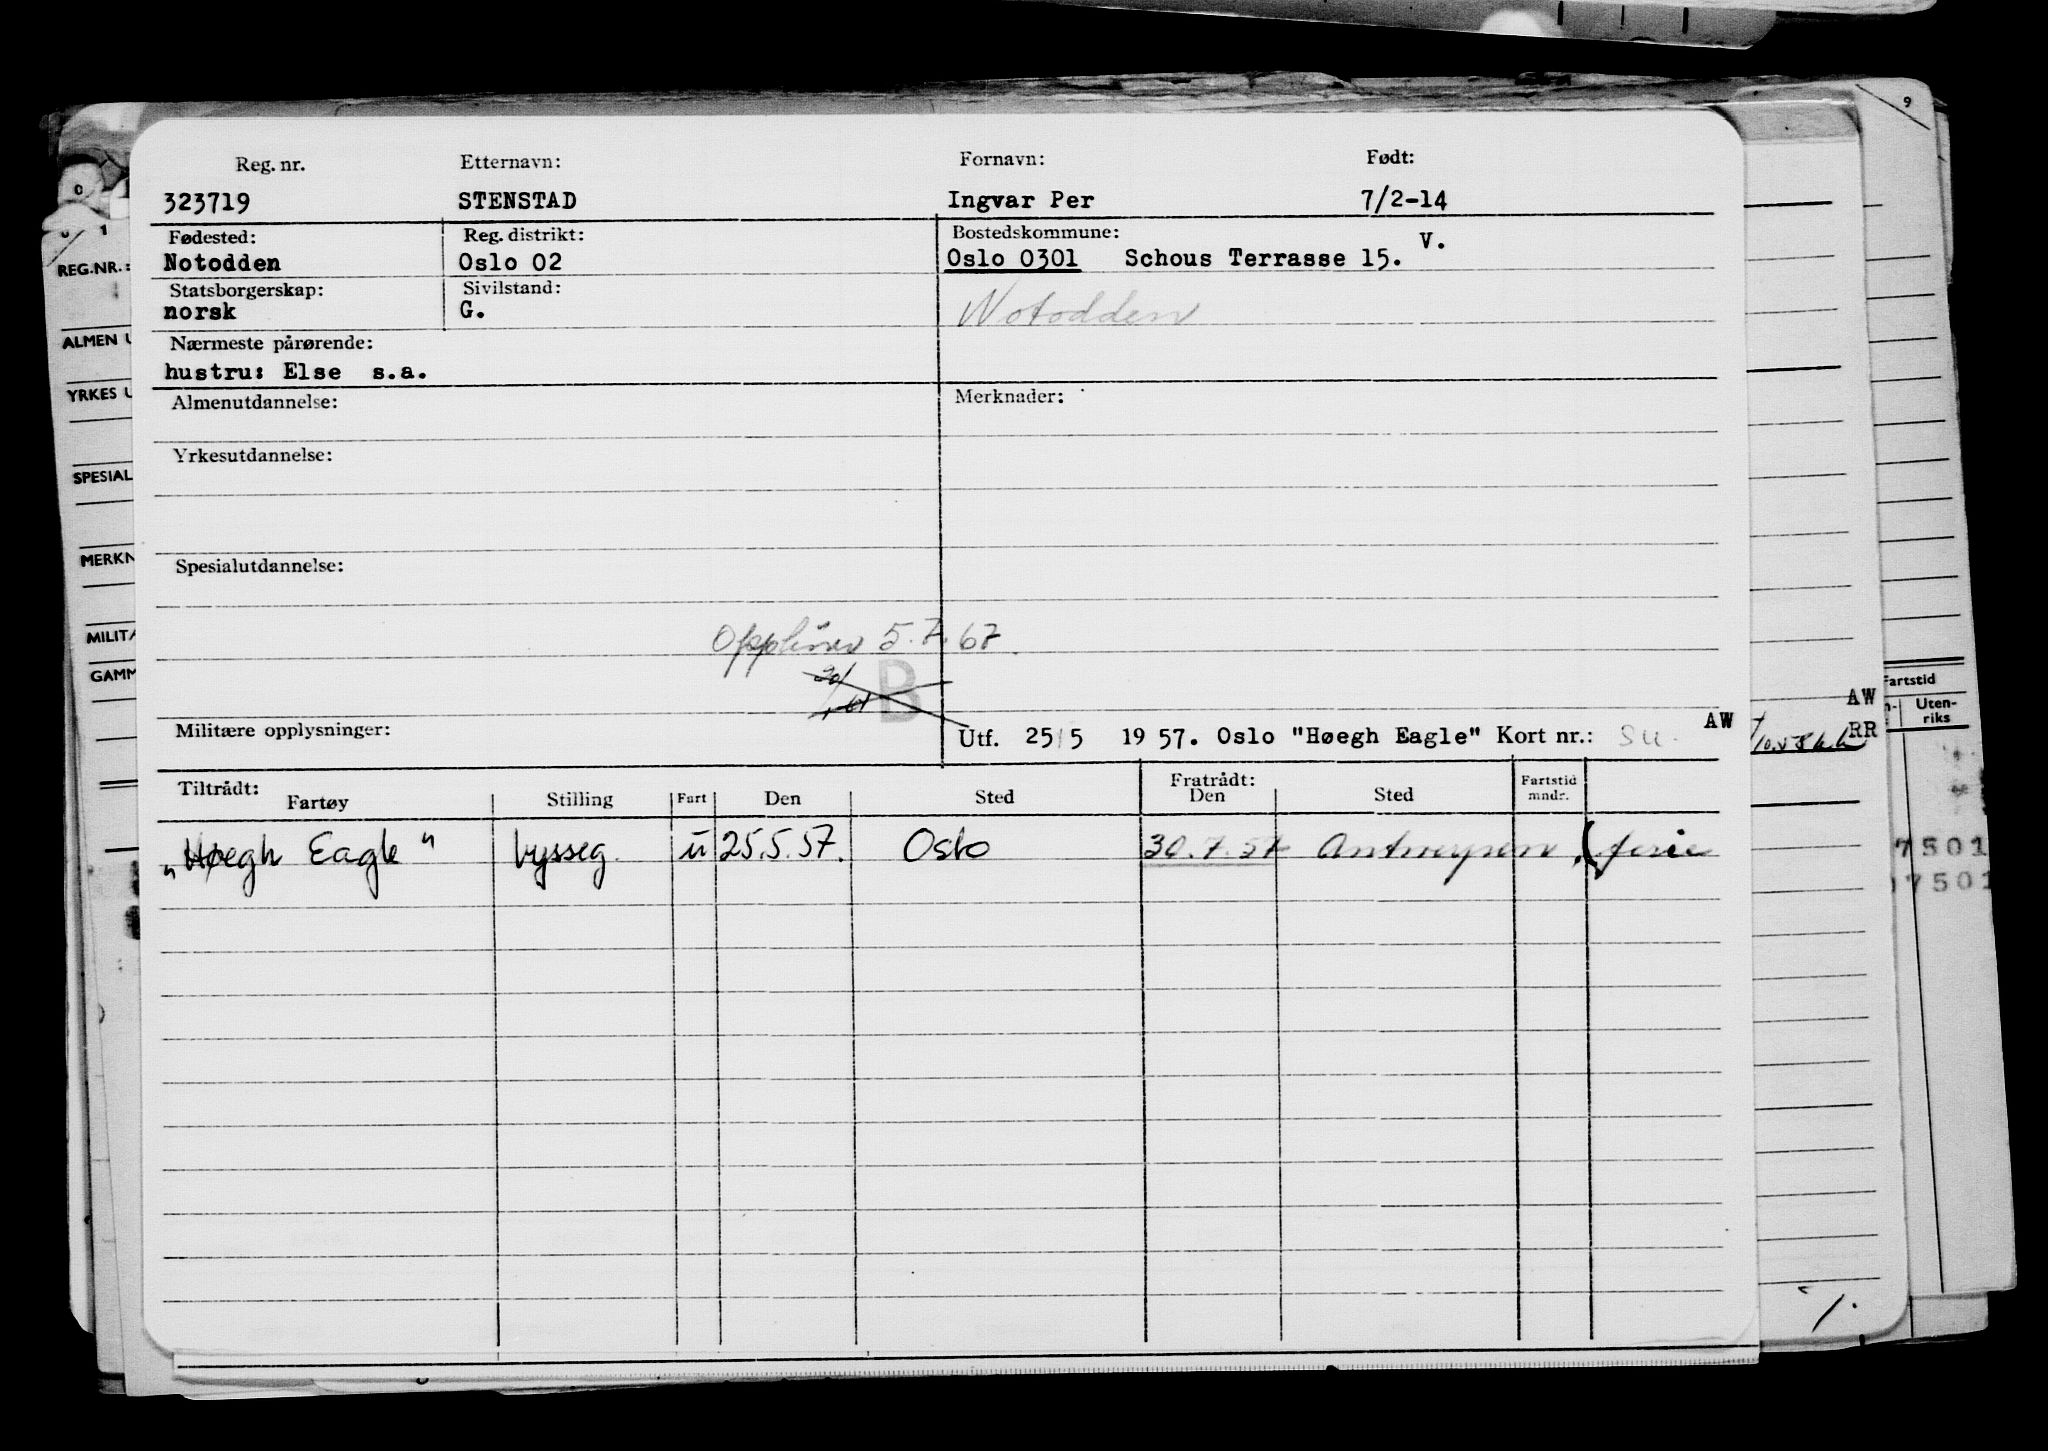 Reg. nr. Etternavn: Fornavn: Født:
323719 STENSTAD Ingvar Per 7/2-14
Fødested: Reg. distrikt: Bostedskommune: V.
Notodden Oslo 02 Oslo 0301 Schous Terrasse 15.
Statsborgerskap: Sivilstand:
norsk G. Notodden
Nærmeste pårørende:
hustru: Else s.a.
Almenutdannelse: Merknader:
Yrkesutdannelse:
Spesialutdannelse:
Opphører 5.7.67.
B
Militære opplysninger: Utf. 25/5 1957. Oslo "Høegh Eagle" Kort nr.: su. AW
Tiltrådt: Fratrådt: Fartstid
Fartøy Stilling Fart Den Sted Den Sted mndr.
"Høegh Eagle" bysseg. u 25.5.57. Oslo 30.7.57 Antwerpen. (ferie
9
0
1
REG.NR.:
ALMEN U
YRKES U
SPESIAL
MERKN
MILITA
GAMM
AW
RR
Fartstid
n- Uten-
riks
7501
7501